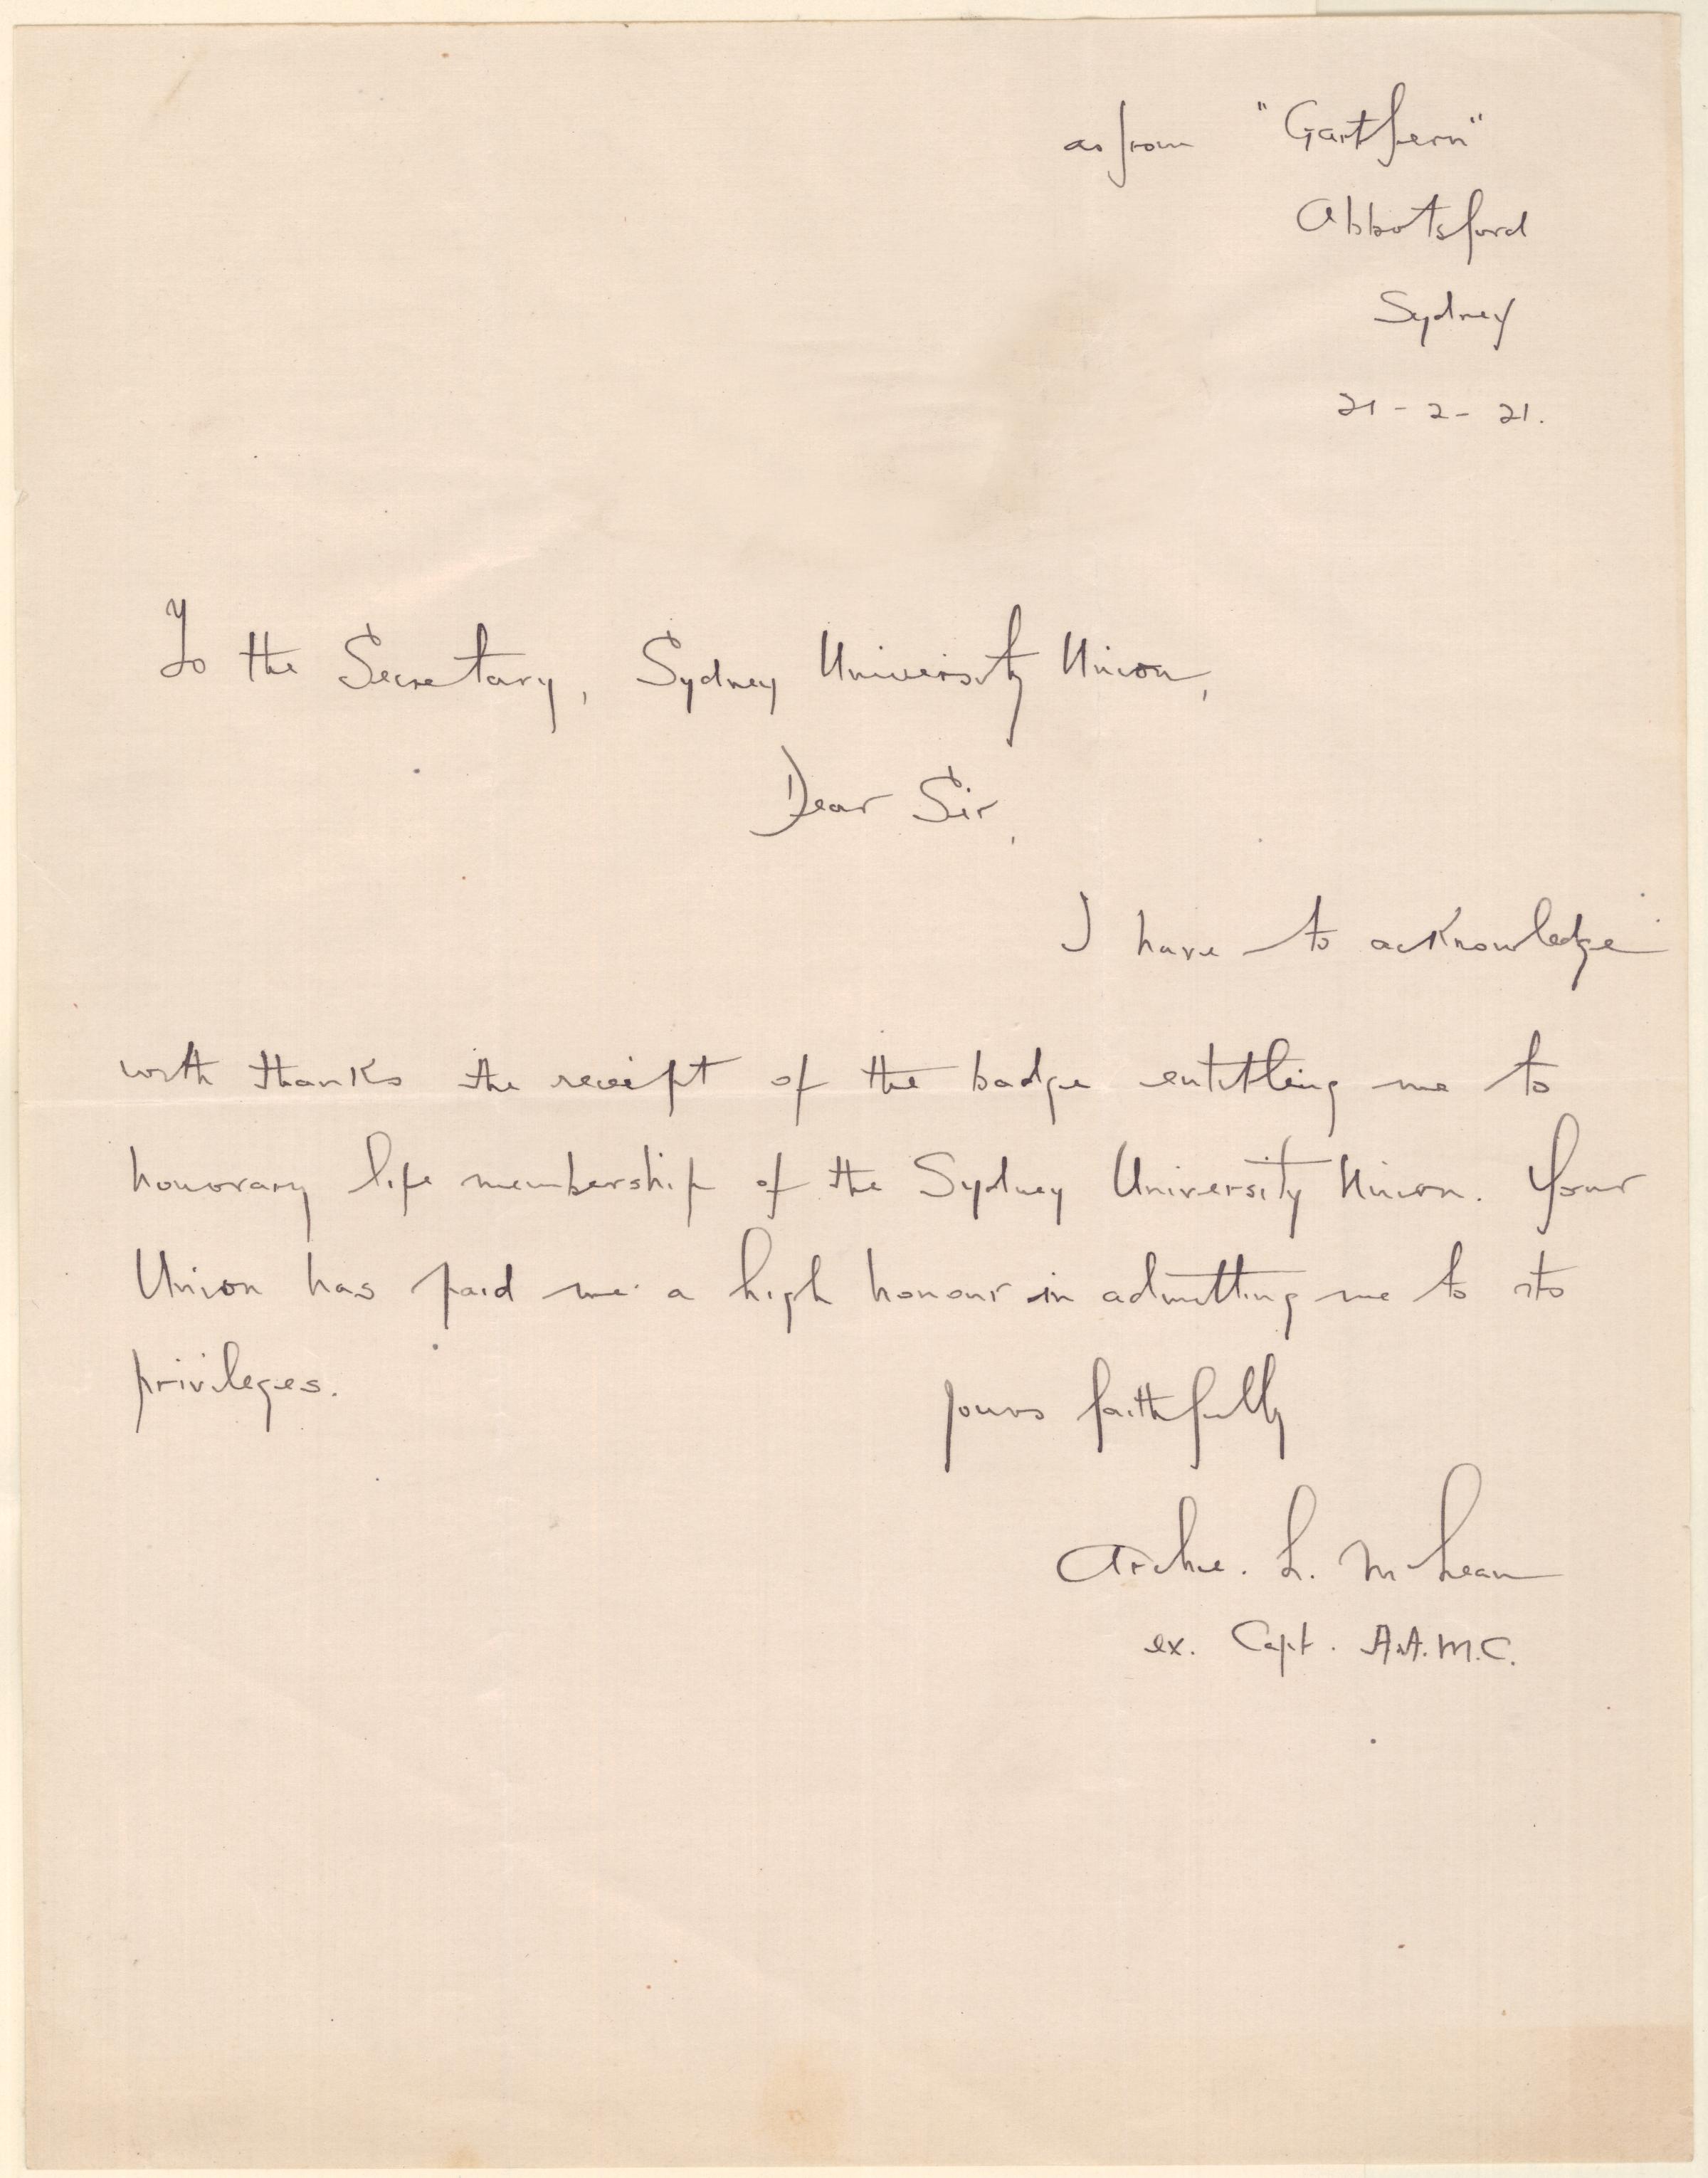 as from "Gartfern"
Abbotsford
Sydney
21-2-21.
To the Secretary, Sydney University Union,
Dear Sir,
I have to acknowledge
with thanks the receipt of the badge entitling me to
honorary life membership of the Sydney University Union. Your
Union has paid me a high honour in admitting me to its
privileges.
yours faithfully
Archie. L. McLean
ex. Capt. A.A.M.C.